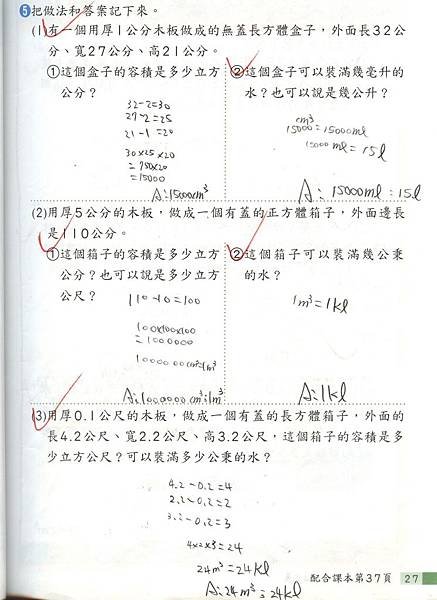 5 把做法和答案記下來。
(1)有一個用厚1公分木板做成的無蓋長方體盒子,外面長32公
分、寬27公分、高21公分。
①這個盒子的容積是多少立方
公分?
32-2=30
27-2=25
21-1=20
30×25×20
=750×20
=15000
A:15000cm³
②這個盒子可以裝滿幾毫升的
水?也可以說是幾公升?
15000cm³=15000ml
15000ml=15l
A:15000ml;15l
(2)用厚5公分的木板,做成一個有蓋的正方體箱子,外面邊長
是110公分。
①這個箱子的容積是多少立方
公分?也可以說是多少立方
公尺?
110-10=100
100×100×100
=1000000
1000000cm³=1m³
A:1000000cm³;1m³
②這個箱子可以裝滿幾公秉
的水?
1m³=1kl
A:1kl
(3)用厚0.1公尺的木板,做成一個有蓋的長方體箱子,外面的
長4.2公尺、寬2.2公尺、高3.2公尺,這個箱子的容積是多
少立方公尺?可以裝滿多少公秉的水?
4.2-0.2=4
2.2-0.2=2
3.2-0.2=3
4×2×3=24
24m³=24kl
A:24m³;24kl
配合課本第37頁 27